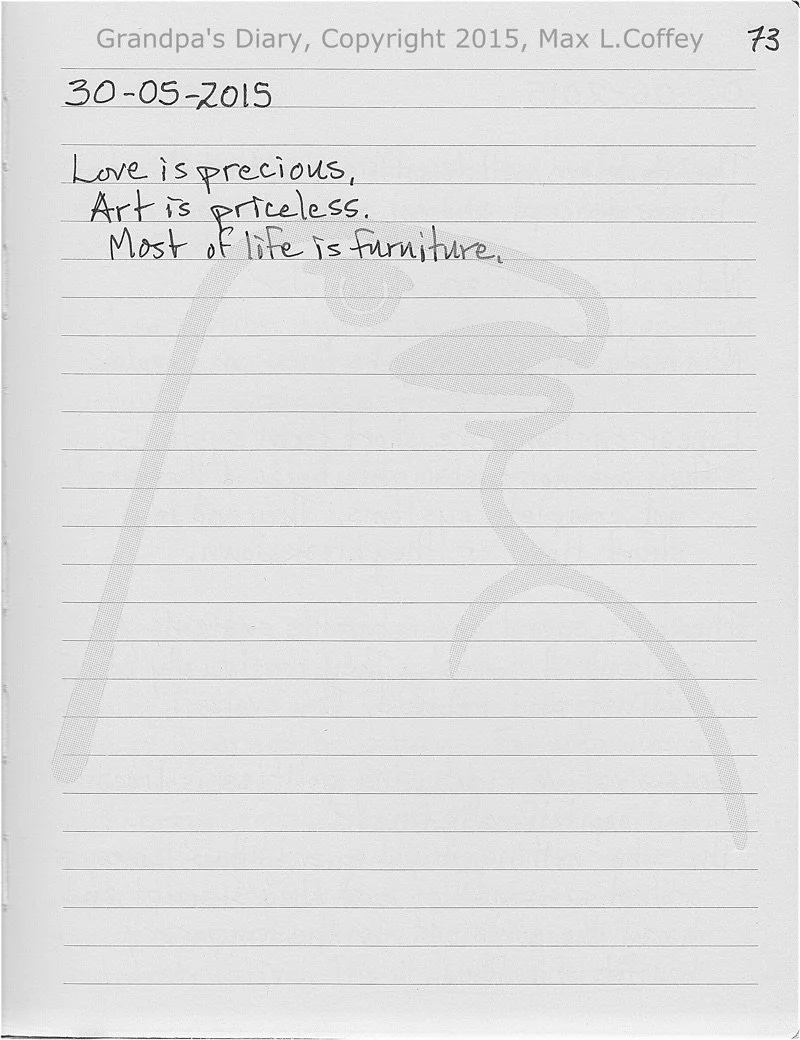 Grandpa's Diary, Copyright 2015, Max L.Coffey 73
30-05-2015
Love is precious,
Art is priceless.
Most of life is furniture.